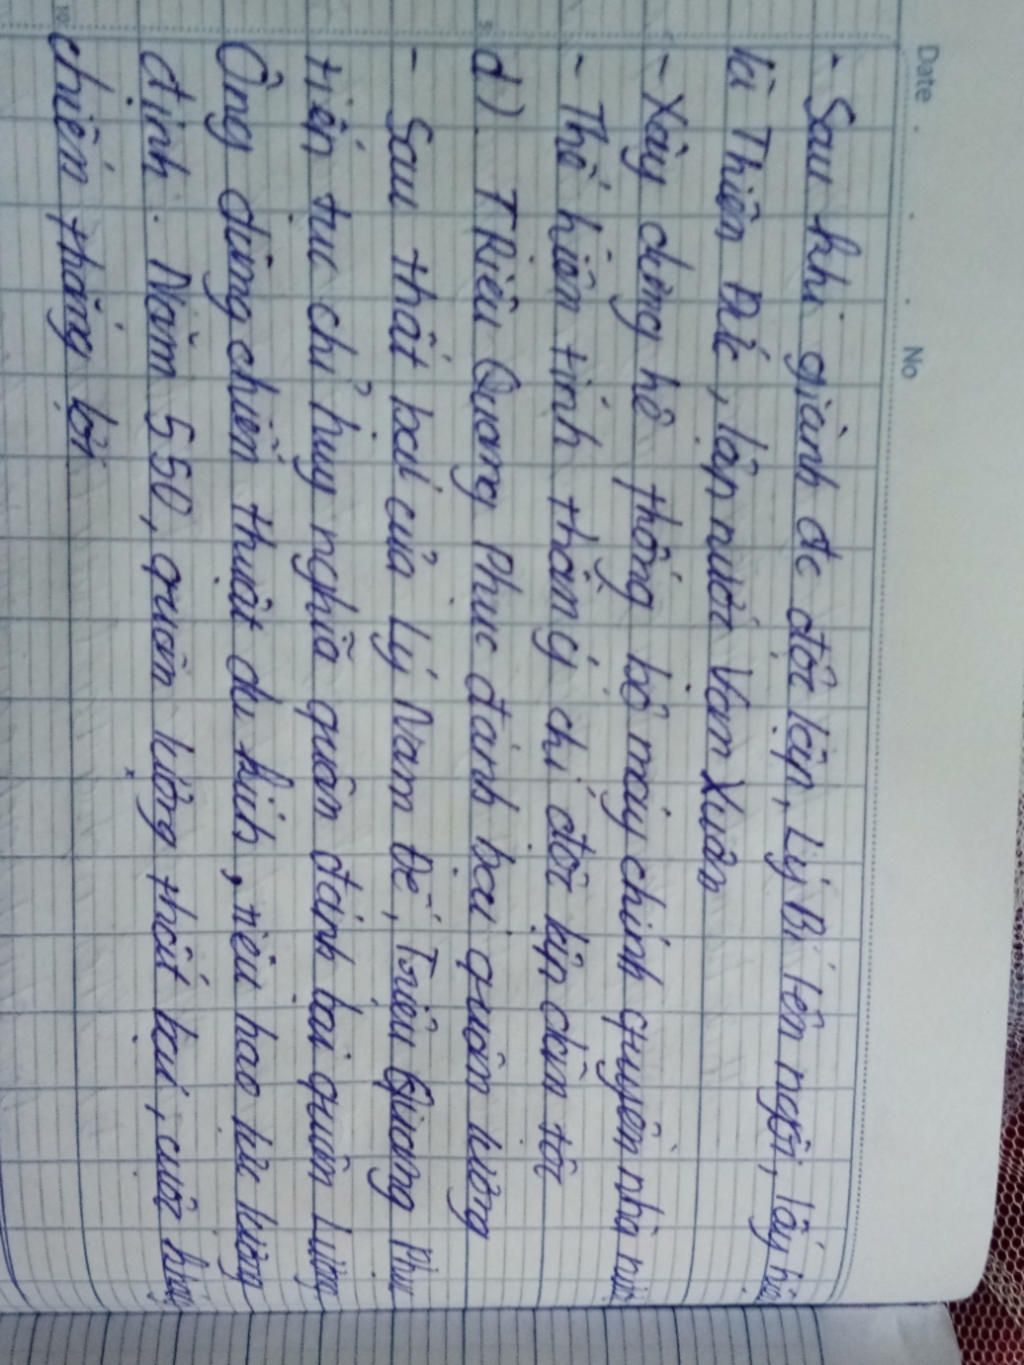 Date . No
- Sau khi giành đc độc lập, Lý Bí lên ngôi, lấy hiệu
là Thiên Đức, lập nước Vạn Xuân
- Xây dựng hệ thống bộ máy chính quyền nhà nước
- Thể hiện tinh thần ý chí độc lập dân tộc
d) Triệu Quang Phục đánh bại quân Lương
- Sau thất bại của Lý Nam Đế, Triệu Quang Phục
tiếp tục chỉ huy nghĩa quân đánh bại quân Lương
Ông dùng chiến thuật du kích, tiêu hao lực lượng
địch. Năm 550, quân Lương thất bại, cuộc kháng
chiến thắng lợi